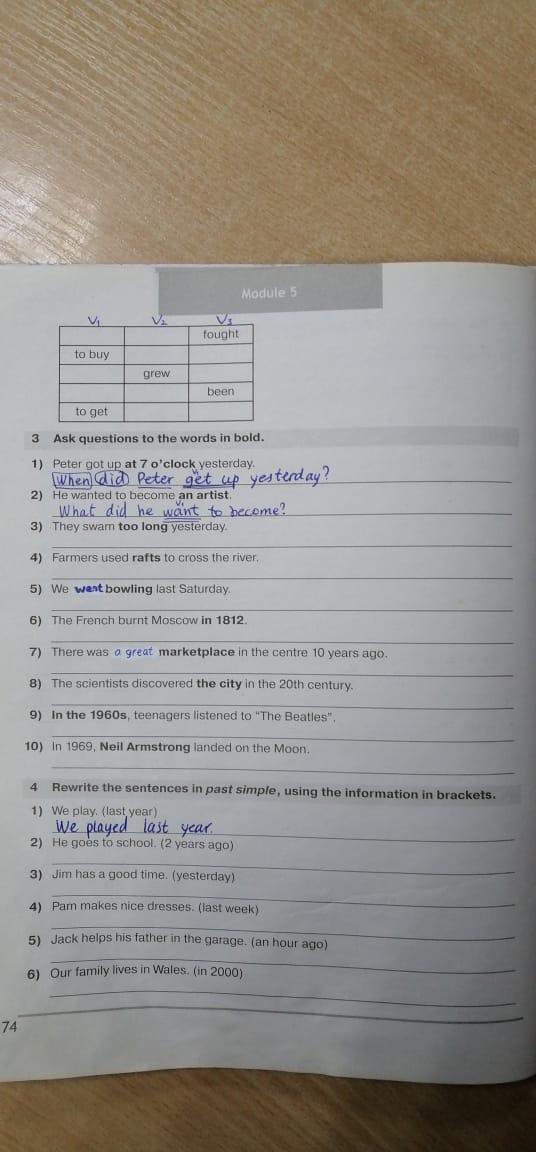 Module 5
V1 V2 V3
fought
to buy
grew
been
to get
3 Ask questions to the words in bold.
1) Peter got up at 7 o'clock yesterday.
When did Peter get up yesterday?
2) He wanted to become an artist.
What did he want to become?
3) They swam too long yesterday.
4) Farmers used rafts to cross the river.
5) We went bowling last Saturday.
6) The French burnt Moscow in 1812.
7) There was a great marketplace in the centre 10 years ago.
8) The scientists discovered the city in the 20th century.
9) In the 1960s, teenagers listened to "The Beatles".
10) In 1969, Neil Armstrong landed on the Moon.
4 Rewrite the sentences in past simple, using the information in brackets.
1) We play. (last year)
We played last year.
2) He goes to school. (2 years ago)
3) Jim has a good time. (yesterday)
4) Pam makes nice dresses. (last week)
5) Jack helps his father in the garage. (an hour ago)
6) Our family lives in Wales. (in 2000)
74